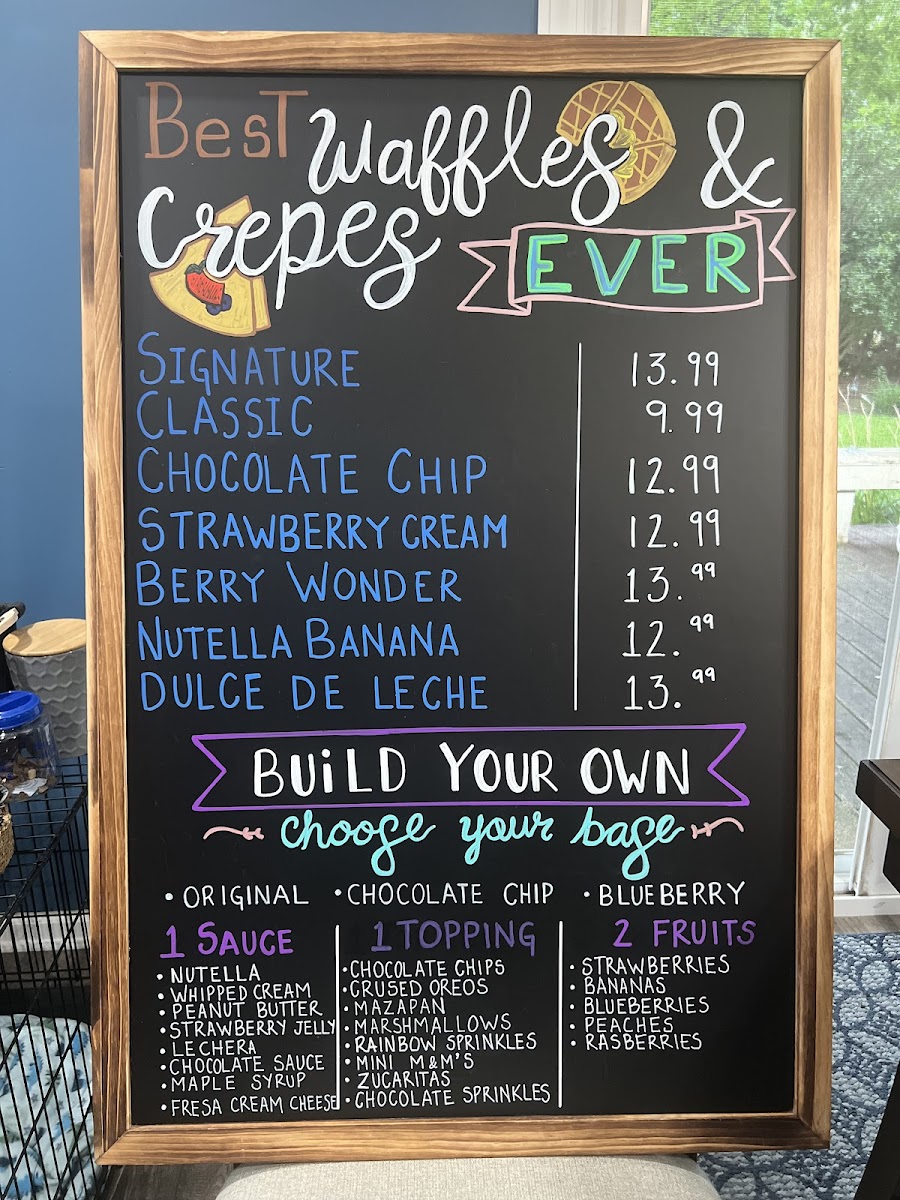 Best Waffles &
Crepes EVER
SIGNATURE 13.99
CLASSIC 9.99
CHOCOLATE CHIP 12.99
STRAWBERRY CREAM 12.99
BERRY WONDER 13.99
NUTELLA BANANA 12.99
DULCE DE LECHE 13.99
BUiLD YOUR OWN
choose your base
• ORIGINAL • CHOCOLATE CHIP • BLUEBERRY
1 SAUCE
• NUTELLA
• WHIPPED CREAM
• PEANUT BUTTER
• STRAWBERRY JELLY
• LECHERA
• CHOCOLATE SAUCE
• MAPLE SYRUP
• FRESA CREAM CHEESE
1 TOPPING
• CHOCOLATE CHIPS
• CRUSED OREOS
• MAZAPAN
• MARSHMALLOWS
• RAINBOW SPRINKLES
• MINI M&M'S
• ZUCARITAS
• CHOCOLATE SPRINKLES
2 FRUITS
• STRAWBERRIES
• BANANAS
• BLUEBERRIES
• PEACHES
• RASBERRIES